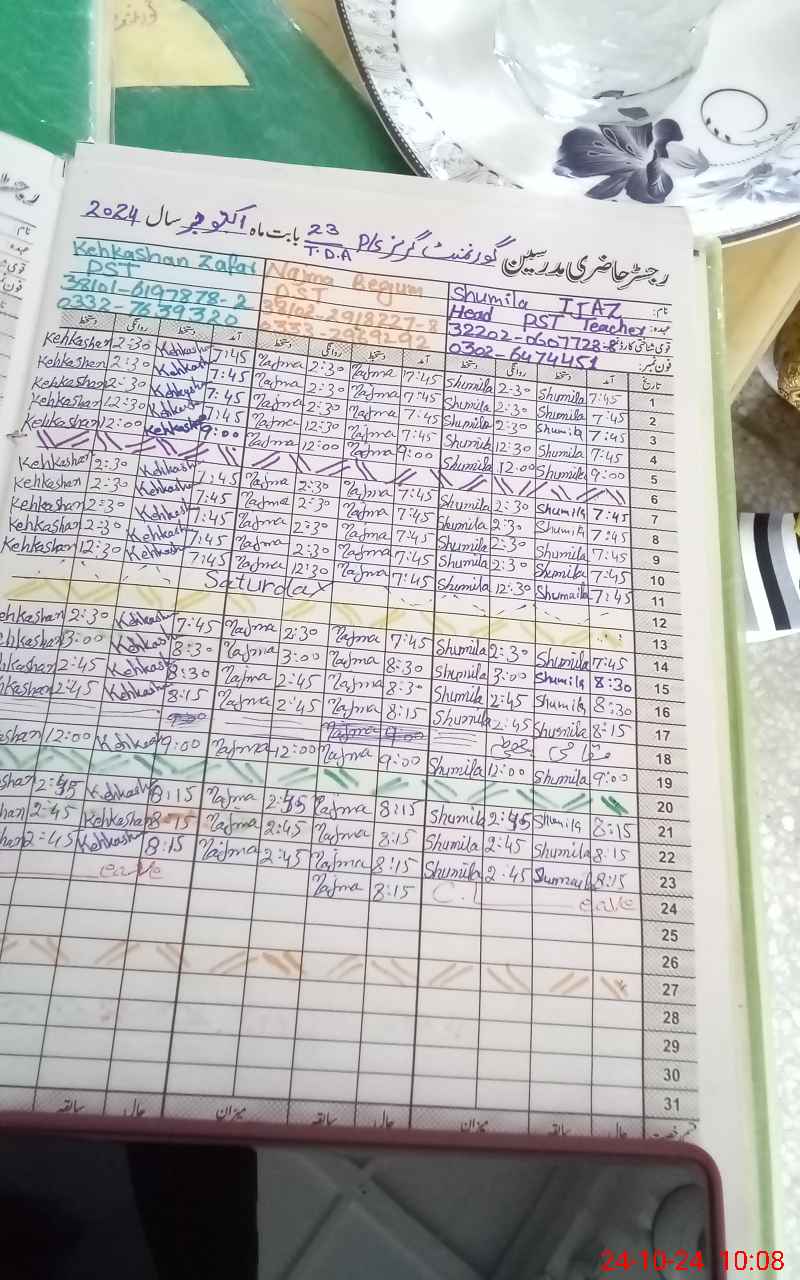 رجسٹر حاضری مدرسین گورنمنٹ گرلز P/s 23 T.D.A بابت ماہ اکتوبر سال 2024
نام: Shumila IJAZ
عہدہ: Head PST Teacher
قومی شناختی کارڈ: 32202-0607728-8
فون نمبر: 0302-6474451
Najma Begum
PST
38102-2918227-8
0333-7989292
Kehkashan Zafar
PST
38101-6197878-2
0332-7639320
تاریخ آمد دستخط روانگی دستخط آمد دستخط روانگی دستخط آمد دستخط روانگی دستخط
1 7:45 Shumila 2:30 Shumila 7:45 Najma 2:30 Najma 7:45 Kehkashan 2:30 Kehkashan
2 7:45 Shumila 2:30 Shumila 7:45 Najma 2:30 Najma 7:45 Kehkashan 2:30 Kehkashan
3 7:45 Shumila 2:30 Shumila 7:45 Najma 2:30 Najma 7:45 Kehkashan 2:30 Kehkashan
4 7:45 Shumila 12:30 Shumila 7:45 Najma 12:30 Najma 7:45 Kehkashan 12:30 Kehkashan
5 9:00 Shumila 12:00 Shumila 9:00 Najma 12:00 Najma 9:00 Kehkashan 12:00 Kehkashan
6
7 7:45 Shumila 2:30 Shumila 7:45 Najma 2:30 Najma 7:45 Kehkashan 2:30 Kehkashan
8 7:45 Shumila 2:30 Shumila 7:45 Najma 2:30 Najma 7:45 Kehkashan 2:30 Kehkashan
9 7:45 Shumila 2:30 Shumila 7:45 Najma 2:30 Najma 7:45 Kehkashan 2:30 Kehkashan
10 7:45 Shumila 2:30 Shumila 7:45 Najma 2:30 Najma 7:45 Kehkashan 2:30 Kehkashan
11 7:45 Shumaila 12:30 Shumila 7:45 Najma 12:30 Najma 7:45 Kehkashan 12:30 Kehkashan
12 Saturday
13
14 7:45 Shumila 2:30 Shumila 7:45 Najma 2:30 Najma 7:45 Kehkashan 2:30 ehkashan
15 8:30 Shumila 3:00 Shumila 8:30 Najma 3:00 Najma 8:30 Kehkashan 3:00 ehkashan
16 8:30 Shumila 2:45 Shumila 8:30 Najma 2:45 Najma 8:30 Kehkashan 2:45 kashan
17 8:15 Shumila 2:45 Shumila 8:15 Najma 2:45 Najma 8:15 Kehkashan 2:45 kashan
18 مقامی Najma 9:00
19 9:00 Shumila 12:00 Shumila 9:00 Najma 12:00 Najma 9:00 Kehkashan 12:00 shan
20
21 8:15 Shumila 2:45 Shumila 8:15 Najma 2:45 Najma 8:15 Kehkashan 2:45 shan
22 8:15 Shumila 2:45 Shumila 8:15 Najma 2:45 Najma 8:15 Kehkashan 2:45 han
23 8:15 Shumaila 2:45 Shumila 8:15 Najma 2:45 Najma 8:15 Kehkashan 2:45 han
24 eave C.L 8:15 Najma eave
25
26
27
28
29
30
31
حال سابقہ میزان حال سابقہ میزان حال سابقہ
24-10-24 10:08